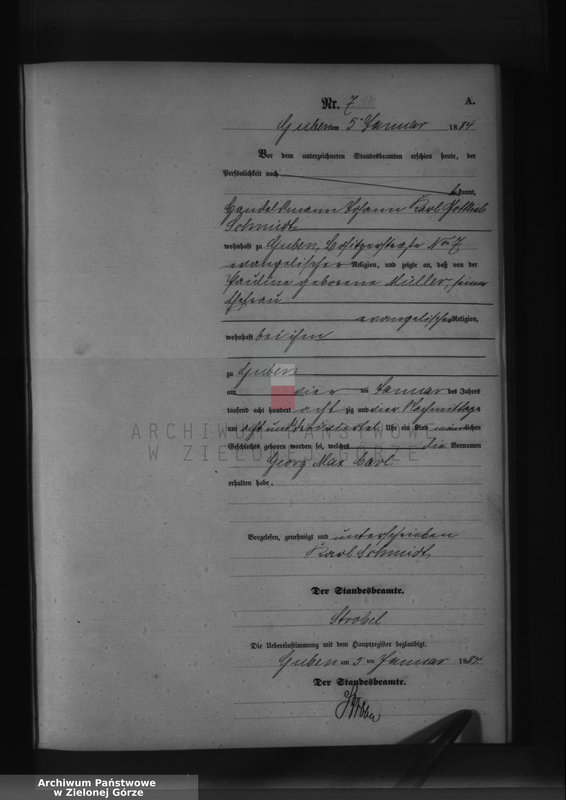 Nr. 7
A.
Guben am 5. Januar 1884
Vor dem unterzeichneten Standesbeamten erschien heute, der
Persönlichkeit nach
kannt,
Handelsmann Johann Karl Gottlieb
Schmidt
wohnhaft zu Guben, Nr. 7
evangelischer Religion, und zeigte an, daß von der
Pauline geborene Müller, seiner
Ehefrau
evangelischer Religion,
wohnhaft bei ihm
zu Guben
am vier ten Januar des Jahres
tausend acht hundert acht zig und vier Nachmittags
um acht und dreiviertel Uhr ein Kind männlichen
Geschlechts geboren worden sei, welches die Vornamen
Georg Max Carl.
erhalten habe.
Vorgelesen, genehmigt und unterschrieben
Karl Schmidt
Der Standesbeamte.
Ströbel
Die Uebereinstimmung mit dem Hauptregister beglaubigt.
Guben am 5. ten Januar 1884.
Der Standesbeamte.
ARCHIWUM PAŃSTWOWE
W ZIELONEJ GÓRZE
Archiwum Państwowe
w Zielonej Górze